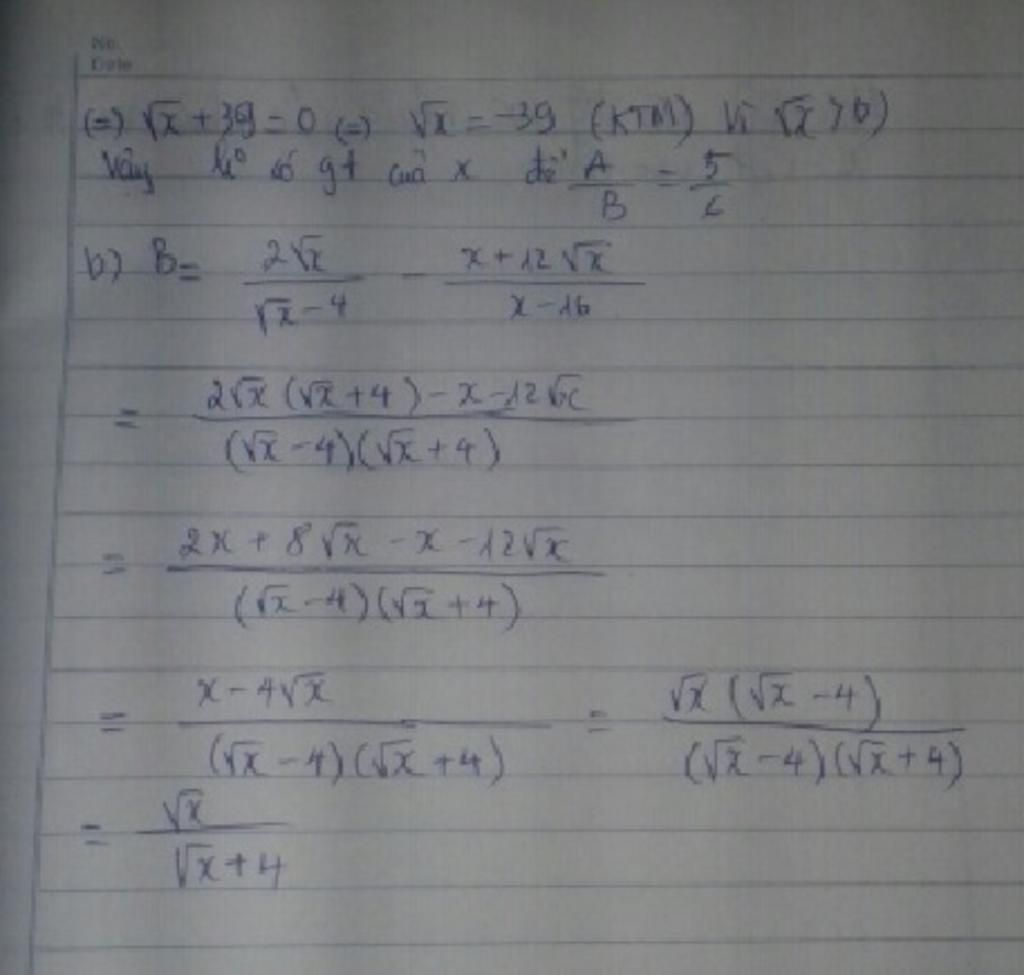 No.
Date
(=) √x + 39 = 0 (=) √x = -39 (KTM) Vì √x > 0)
Vậy ko có gt của x để A/B = 5/6
b) B = 2√x/(√x - 4) - (x + 12√x)/(x - 16)
= (2√x (√x + 4) - x - 12√x)/((√x - 4)(√x + 4))
= (2x + 8√x - x - 12√x)/((√x - 4)(√x + 4))
= (x - 4√x)/((√x - 4)(√x + 4)) = (√x (√x - 4))/((√x - 4)(√x + 4))
= √x/(√x + 4)